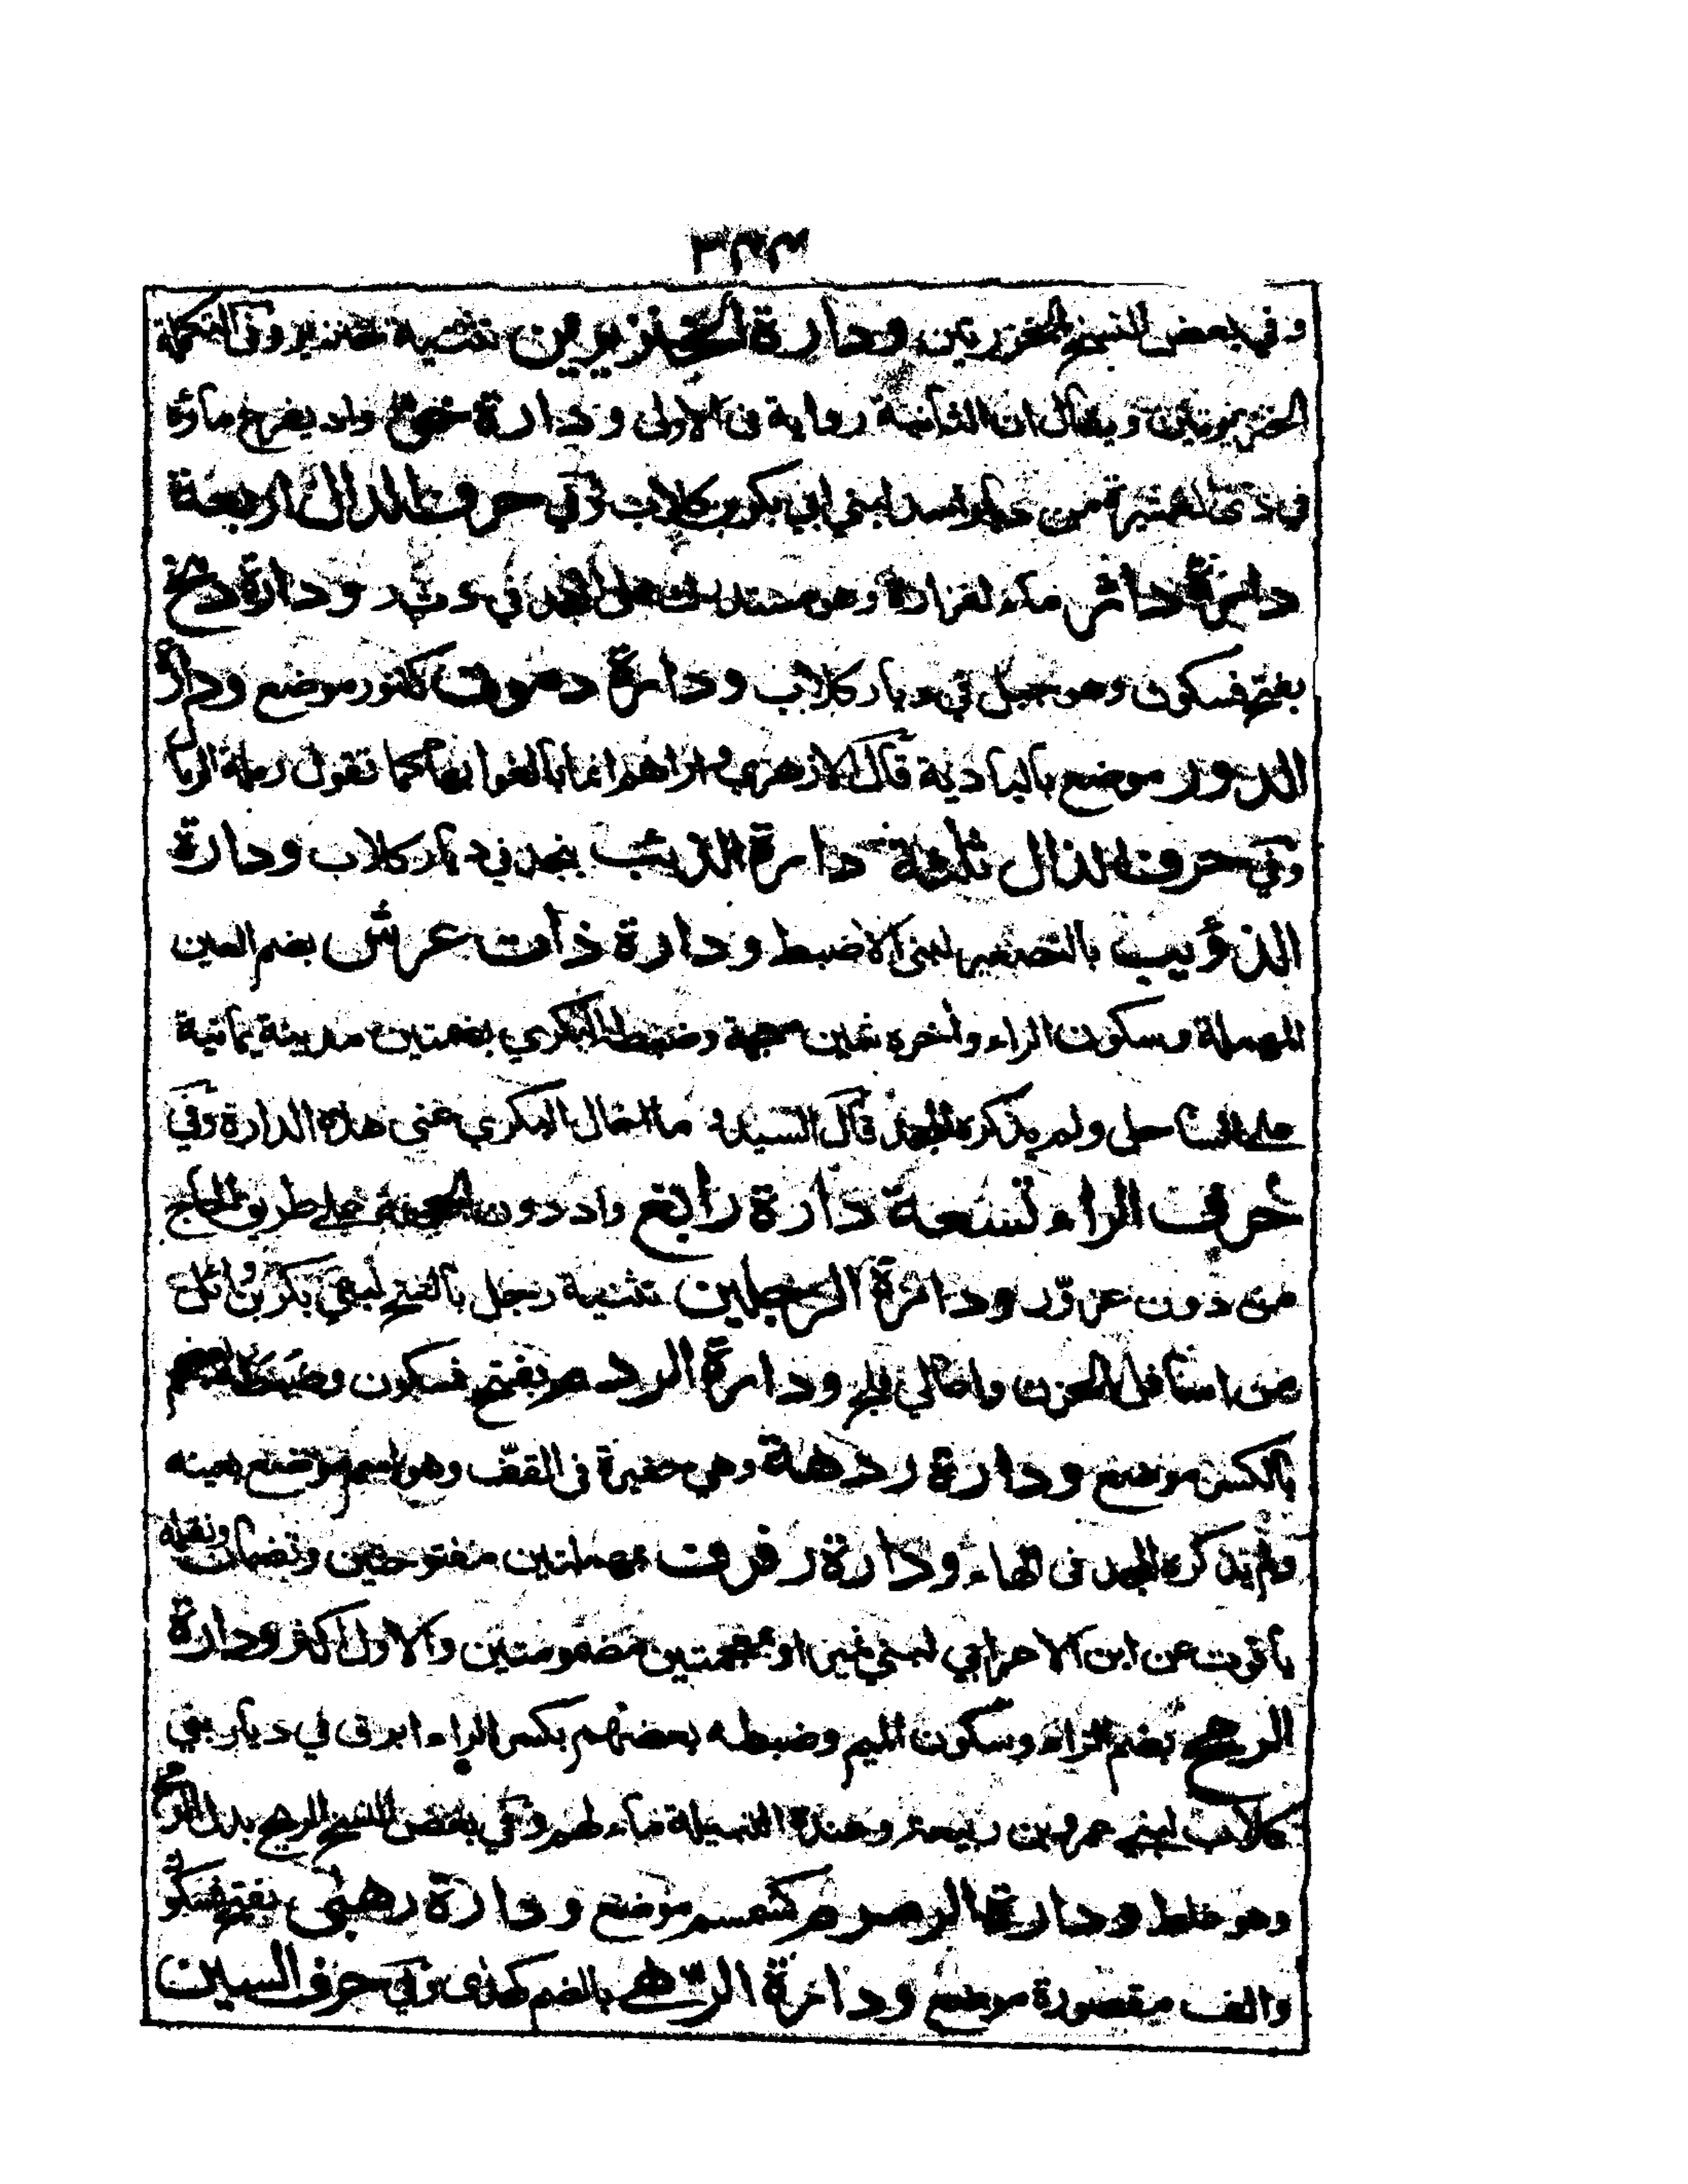 ٣٤٣
وفي بعض النسخ الخزرتين ودارة الخنزيرين تثنية خنزير وفى التكملة
الخنزيرتين ويقال ان الثانية رواية فى الاولى ودارة خو واد يفرغ ماؤه
في ذى العشيرة من ديار اسد لبني ابي بكر بن كلاب وفي حرف الدال اربعة
دارة داثر ماء لفزارة وهو مستدرك على المجد في دثر ودارة دمخ
بفتح فسكون وهو جبل في ديار كلاب ودارة دمون كتنور موضع ودارة
الدور موضع بالبادية قال الازهري واراهم انما بالغوا بها كما تقول رملة الرمال
وفي حرف الذال ثلثة دارة الذئب بنجد في ديار كلاب ودارة
الذؤيب بالتصغير لبنى الاضبط ودارة ذات عرش بضم العين
المهملة وسكون الراء وأخره شين معجمة وضبطه البكري بضمتين مدينة يمانية
على الساحل ولم يذكره المجد قال السيد وما اخال البكري عنى هذه الدارة وفي
حرف الراء تسعة دارة رابغ واد دون الجحفة على طريق الحاج
من دون عزور ودارة الرجلين تثنية رجل بالفتح لبني بكر بن وائل
من اسافل الحزن واعالي فلج ودارة الردم بفتح فسكون وضبطه بعضهم
بالكسر موضع ودارة ردهة وهي حفيرة فى القف وهو اسم موضع بعينه
ولم يذكره المجد فى الهاء ودارة رفرف بمهملتين مفتوحتين وتضمان ونقله
ياقوت عن ابن الاعرابي لبني نمير او بمعجمتين مضمومتين والاول اكثر ودارة
الرمح بضم الراء وسكون الميم وضبطه بعضهم بكسر الراء ابرق في ديار بني
كلاب لبني عمرو بن ربيعة وعنده البتيلة ماء لهم وفي بعض النسخ الريح بدل الرمح
وهو غلط ودارة الرمرم كسمسم موضع ودارة رهبى بفتح فسكون
والف مقصورة موضع ودارة الرهى بالضم كهدى وفي حرف السين